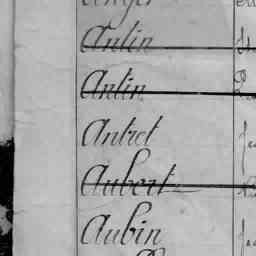 Antin
Antin
Antret
Aubert
Aubin